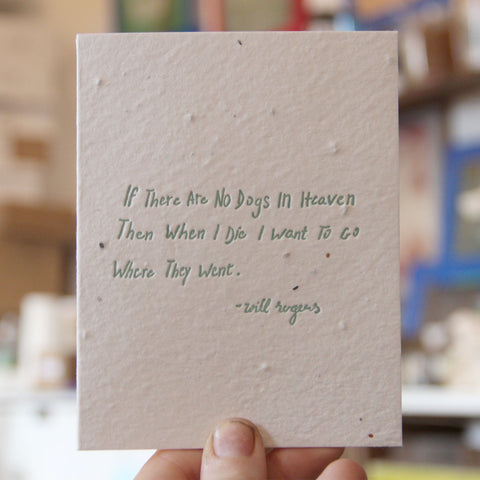 If There Are No Dogs In Heaven
Then When I Die I Want To Go
Where They Went.
-will rogers